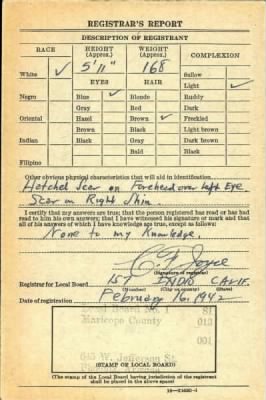 REGISTRAR'S REPORT
DESCRIPTION OF REGISTRANT
RACE HEIGHT (Approx.) WEIGHT (Approx.) COMPLEXION
5' 11" 168
White ✓ EYES HAIR Sallow
Light ✓
Negro Blue ✓ Blonde Ruddy
Gray Red Dark
Oriental Hazel Brown ✓ Freckled
Brown Black Light brown
Indian Black Gray Dark brown
Bald Black
Filipino
Other obvious physical characteristics that will aid in identification
Hatchet Scar on Forehead over left Eye
Scar on Right Shin.
I certify that my answers are true; that the person registered has read or has had
read to him his own answers; that I have witnessed his signature or mark and that
all of his answers of which I have knowledge are true, except as follows:
None to my Knowledge.
Joyce
(Signature of registrar)
Registrar for Local Board 157 INDIO CALIF.
(Number) (City or county) (State)
Date of registration February 16, 1942
Local Board No. 1 81
Maricopa County 013
001
W. Jefferson St.
(STAMP OF LOCAL BOARD)
(The stamp of the Local Board having jurisdiction of the registrant
shall be placed in the above space)